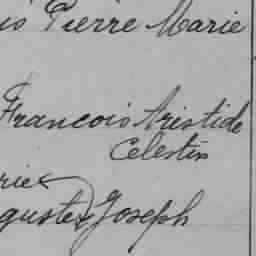 is Pierre Marie
Francois Aristide
Celestin
rie
guste Joseph